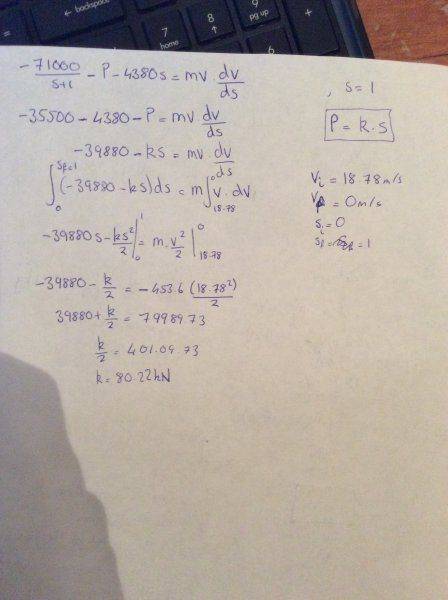 backspace
=
7
home
8
9
pg up
6
-71000/(s+1) - P - 4380s = mv. dv/ds
, s=1
-35500 - 4380 - P = mv. dv/ds
P = k.s
-39880 - ks = mv. dv/ds
∫₀^(sf=1) (-39880 - ks) ds = m ∫_18.78^0 v. dv
Vi = 18.78 m/s
Vf = 0 m/s
si = 0
sf = 1
-39880s - ks²/2 |₀¹ = m. v²/2 |_18.78^0
-39880 - k/2 = -453.6 (18.78²)/2
39880 + k/2 = 79989.73
k/2 = 40109.73
k = 80.22kN